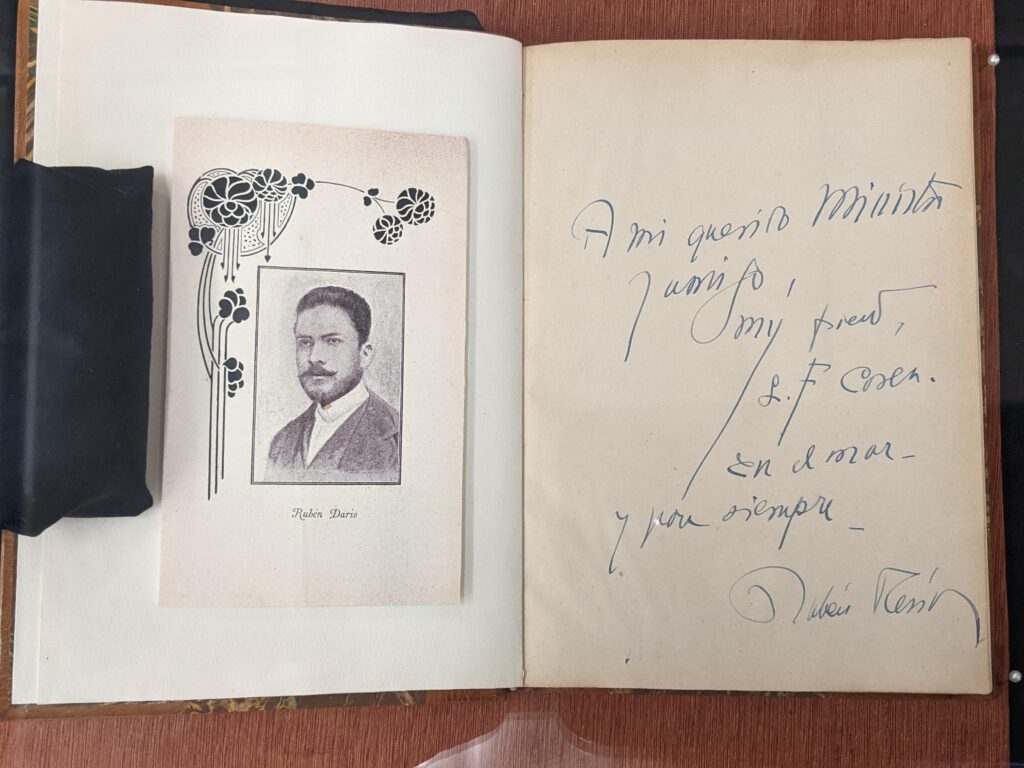 Rubén Darío
A mi querido Ministro
y amigo,
muy
L. F. Corea.
En el mar –
y por siempre –
Rubén Darío